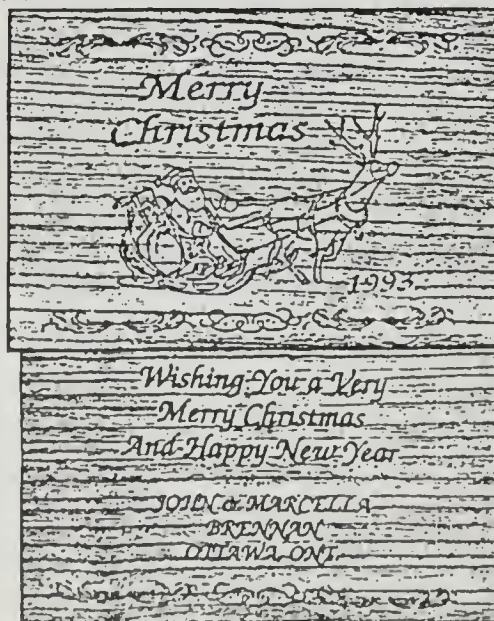 Merry
Christmas
1993
Wishing You a Very
Merry Christmas
And Happy New Year
JOHN & MARCELLA
BRENNAN
OTTAWA, ONT.